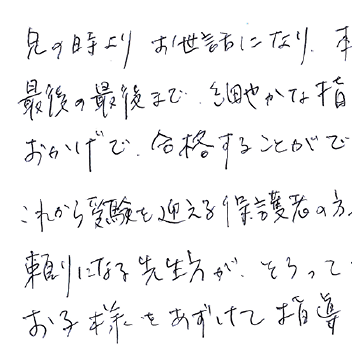 兄の時より お世話になり、本
最後の最後まで、細やかな指
おかげで、合格することがで
これから受験を迎える保護者の方、
頼りになる先生方が、そろって
お子様をあずけて指導